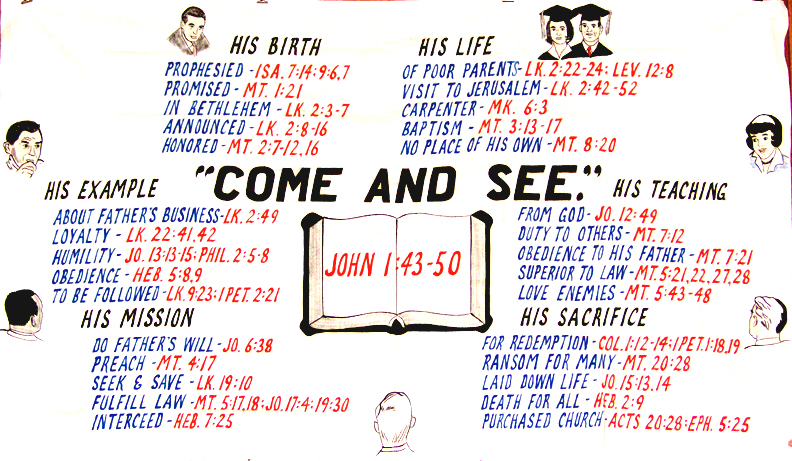 HIS BIRTH
PROPHESIED - ISA. 7:14:9:6,7
PROMISED - MT. 1:21
IN BETHLEHEM - LK. 2:3-7
ANNOUNCED - LK. 2:8-16
HONORED - MT. 2:7-12,16
HIS LIFE
OF POOR PARENTS - LK. 2:22-24; LEV. 12:8
VISIT TO JERUSALEM - LK. 2:42-52
CARPENTER - MK. 6:3
BAPTISM - MT. 3:13-17
NO PLACE OF HIS OWN - MT. 8:20
"COME AND SEE."
HIS EXAMPLE
ABOUT FATHER'S BUSINESS - LK. 2:49
LOYALTY - LK. 22:41,42
HUMILITY - JO. 13:13-15: PHIL. 2:5-8
OBEDIENCE - HEB. 5:8,9
TO BE FOLLOWED - LK. 9:23; 1 PET. 2:21
JOHN 1:43-50
HIS TEACHING
FROM GOD - JO. 12:49
DUTY TO OTHERS - MT. 7:12
OBEDIENCE TO HIS FATHER - MT. 7:21
SUPERIOR TO LAW - MT. 5:21,22,27,28
LOVE ENEMIES - MT. 5:43-48
HIS MISSION
DO FATHER'S WILL - JO. 6:38
PREACH - MT. 4:17
SEEK & SAVE - LK. 19:10
FULFILL LAW - MT. 5:17,18; JO. 17:4; 19:30
INTERCEED - HEB. 7:25
HIS SACRIFICE
FOR REDEMPTION - COL. 1:12-14; 1 PET. 1:18,19
RANSOM FOR MANY - MT. 20:28
LAID DOWN LIFE - JO. 15:13,14
DEATH FOR ALL - HEB. 2:9
PURCHASED CHURCH - ACTS 20:28: EPH. 5:25